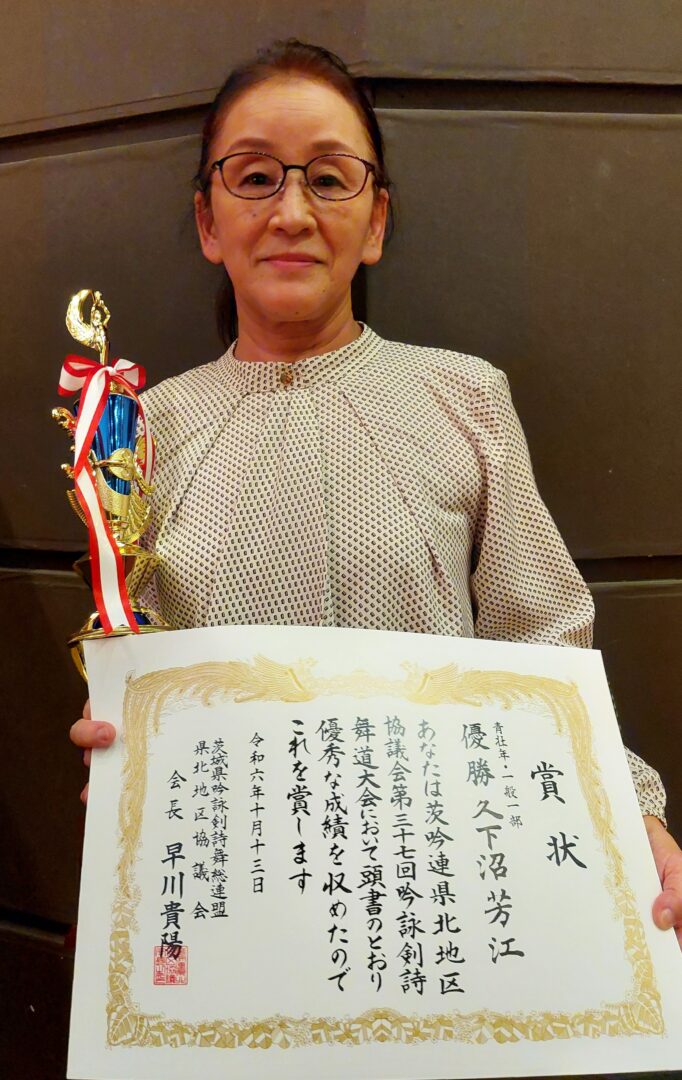 賞状
青壮年・一般一部
優勝 久下沼芳江
あなたは茨吟連県北地区
協議会第三十七回吟詠剣詩
舞道大会において頭書のとおり
優秀な成績を収めたので
これを賞します
令和六年十月十三日
茨城県吟詠剣詩舞総連盟
県北地区協議会
会長 早川貴陽